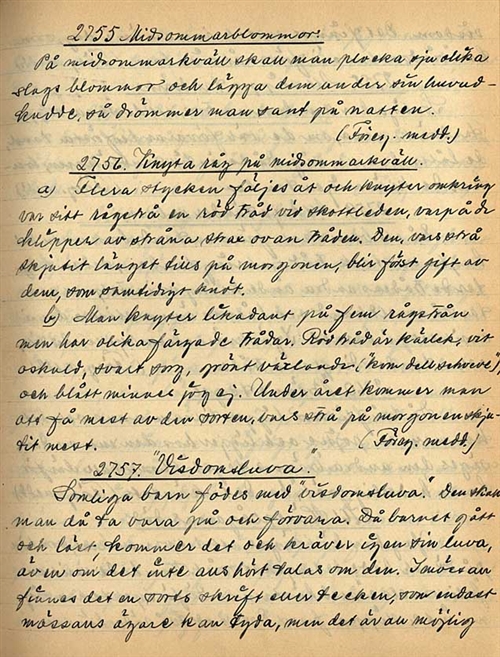 2755 Midsommarblommor.
På midsommarkväll skall man plocka sju olika
slags blommor och lägga dem under sin huvud-
kudde, så drömmer man sant på natten.
(Föreg. medd.)
2756. Knyta råg på midsommarkväll.
a) Flera stycken följes åt och knyter omkring
var sitt rågstrå en röd tråd vid skottleden, varpå de
klipper av stråna strax ovan tråden. Den, vars strå
skjutit längst tills på morgonen, blir först gift av
dem, som samtidigt knöt.
b) Man knyter likadant på fem rågstrån
men har olika färgade trådar. Röd tråd är kärlek, vit
oskuld, svart sorg, grönt växlande
och blått minnes jag ej. Under året kommer man
att få mest av den sorten, vars strå på morgonen skju-
tit mest. (Föreg. medd.)
2757. "Visdomsluva."
Somliga barn födes med "visdomsluva." Den skall
man då ta vara på och förvara. Då barnet gått
och läst, kommer det och kräver igen sin luva,
även om det inte alls hört talas om den. I mössan
finnes det en sorts skrift eller tecken, som endast
mössans ägare kan tyda, men det är all möjlig